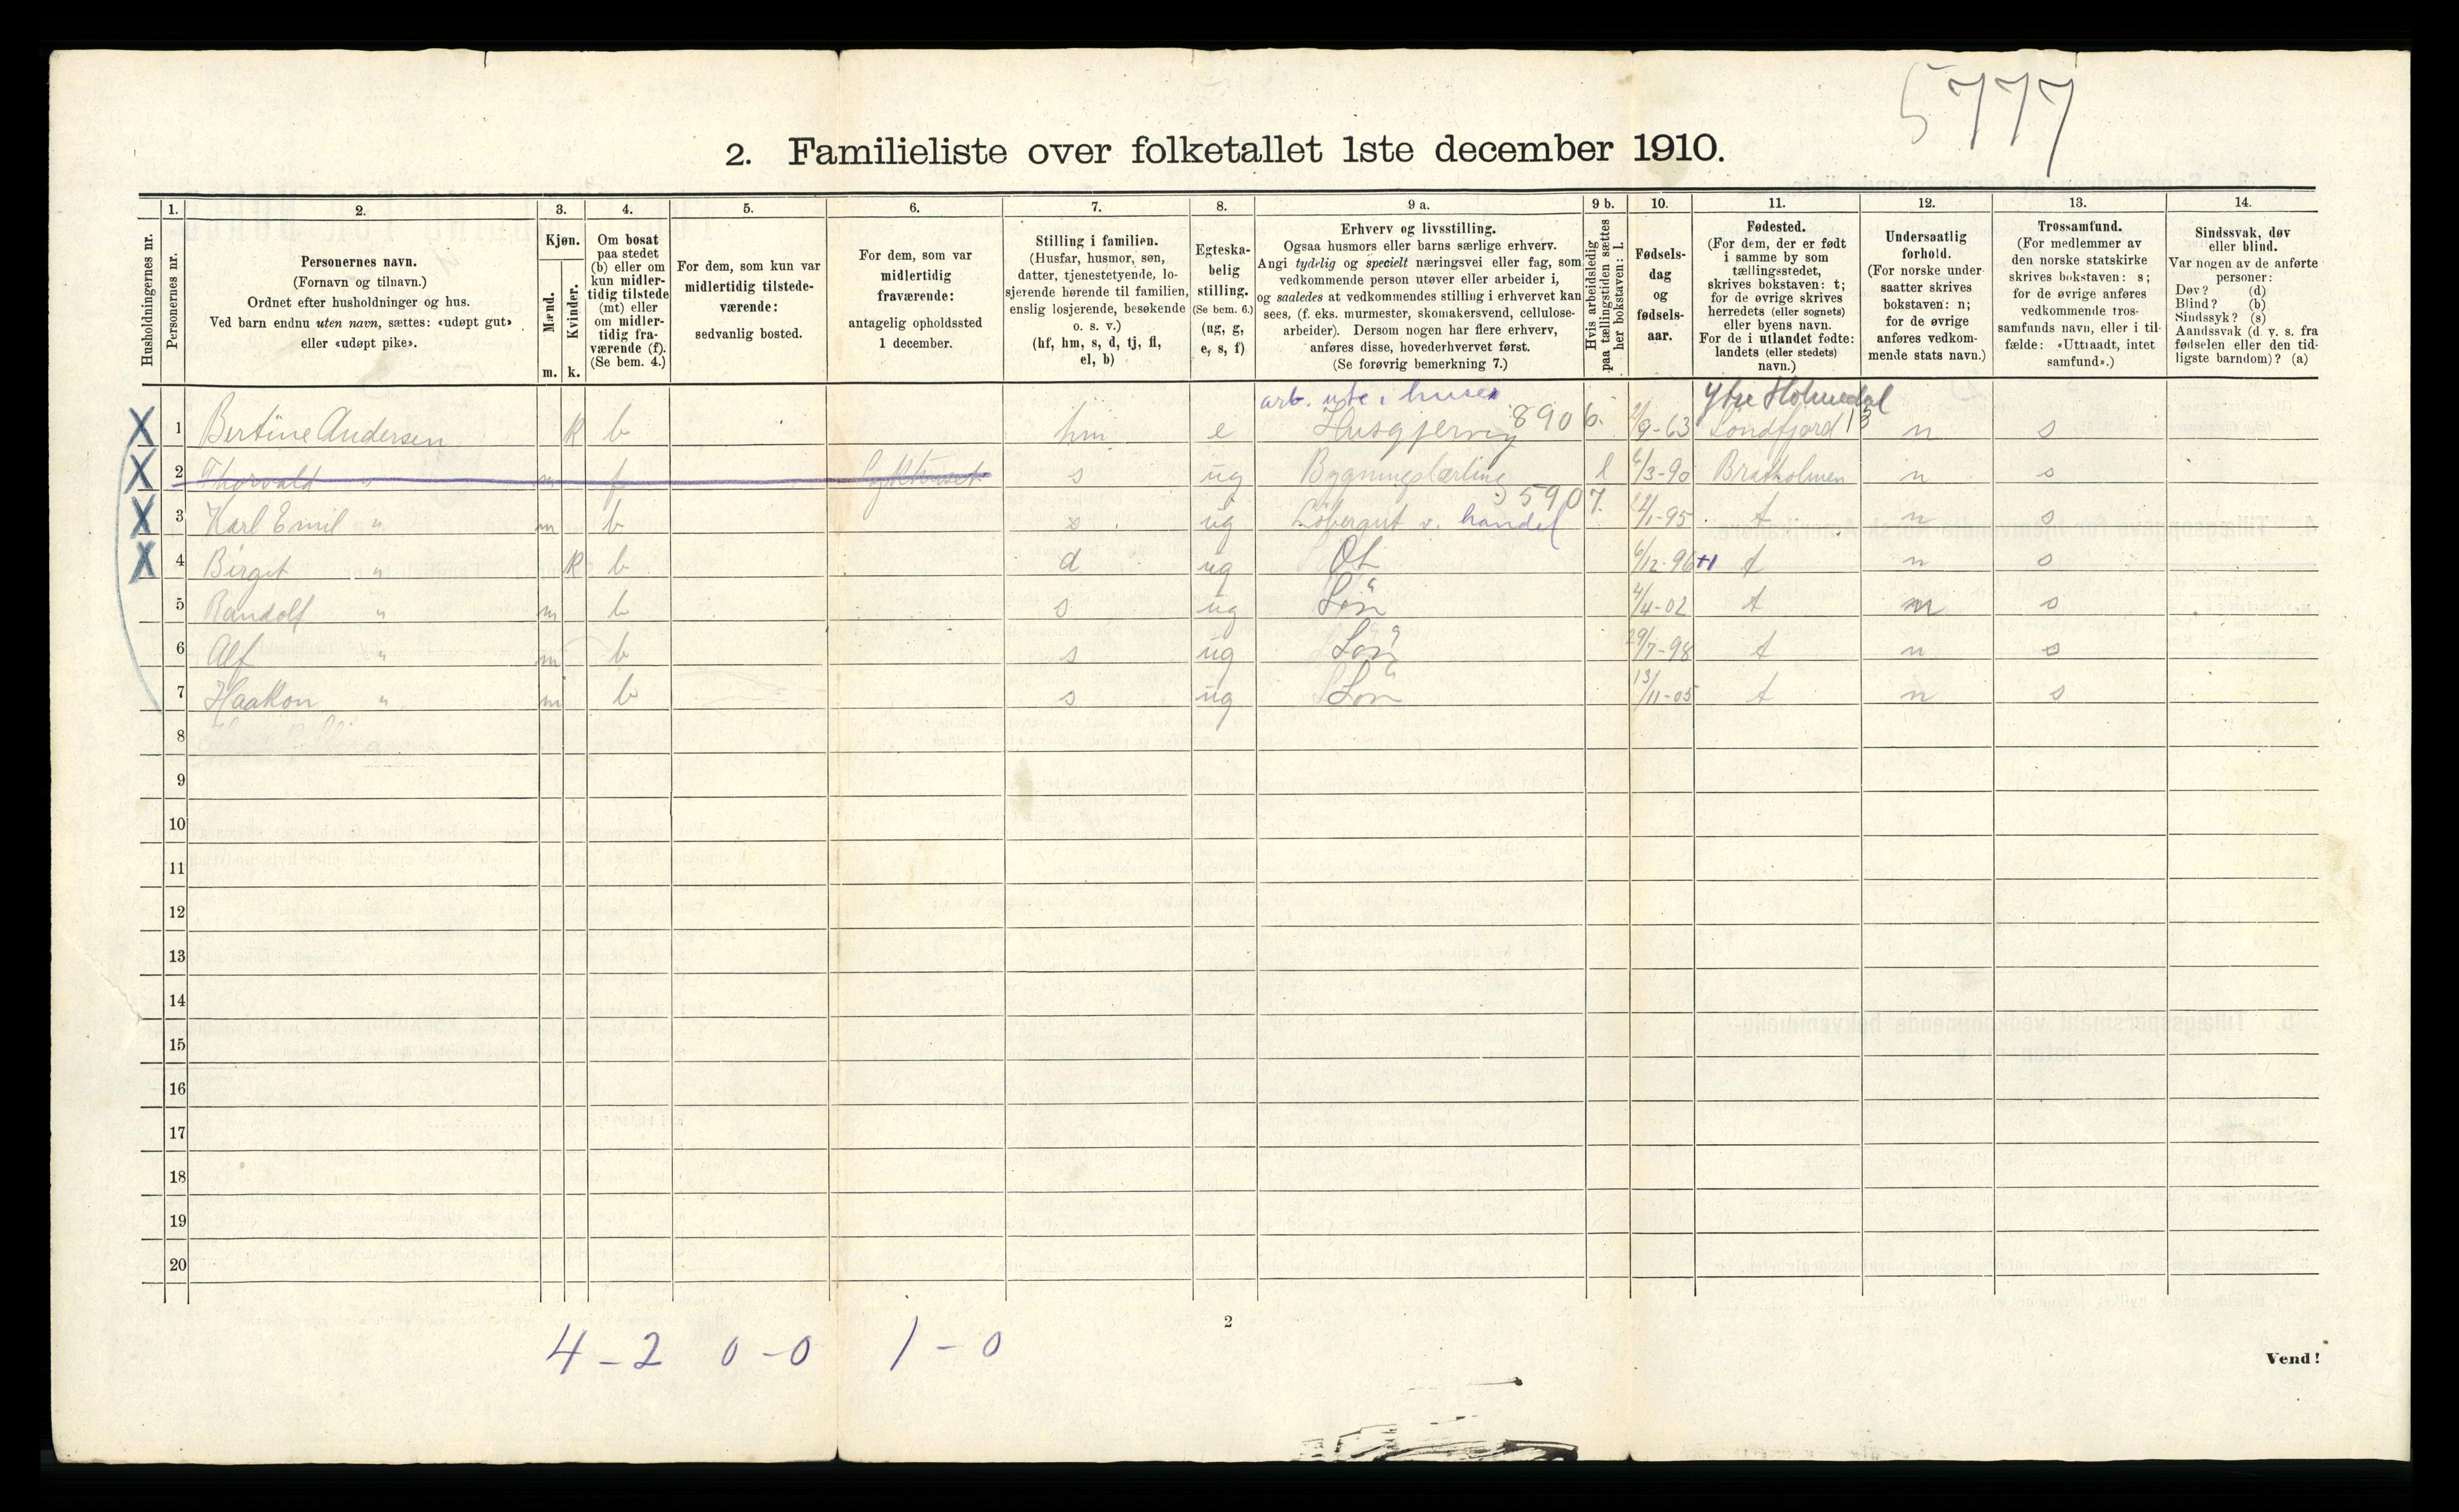 5777
2. Familieliste over folketallet 1ste december 1910.
Husholdningernes nr.
1.
Personernes nr.
2.
Personernes navn.
(Fornavn og tilnavn.)
Ordnet efter husholdninger og hus.
Ved barn endnu uten navn, sættes: «udøpt gut»
eller «udøpt pike».
3.
Kjøn.
Mænd.
Kvinder.
m. k.
4.
Om bosat
paa stedet
(b) eller om
kun midler-
tidig tilstede
(mt) eller
om midler-
tidig fra-
værende (f).
(Se bem. 4.)
5.
For dem, som kun var
midlertidig tilstede-
værende:
sedvanlig bosted.
6.
For dem, som var
midlertidig
fraværende:
antagelig opholdssted
1 december.
7.
Stilling i familien.
(Husfar, husmor, søn,
datter, tjenestetyende, lo-
sjerende hørende til familien,
enslig losjerende, besøkende
o. s. v.)
(hf, hm, s, d, tj, fl,
el, b)
8.
Egteska-
belig
stilling.
(Se bem. 6.)
(ug, g,
e, s, f)
9 a.
Erhverv og livsstilling.
Ogsaa husmors eller barns særlige erhverv.
Angi tydelig og specielt næringsvei eller fag, som
vedkommende person utøver eller arbeider i,
og saaledes at vedkommendes stilling i erhvervet kan
sees, (f. eks. murmester, skomakersvend, cellulose-
arbeider). Dersom nogen har flere erhverv,
anføres disse, hovederhvervet først.
(Se forøvrig bemerkning 7.)
9 b.
Hvis arbeidsledig
paa tællingstiden sættes
her bokstaven: l.
10.
Fødsels-
dag
og
fødsels-
aar.
11.
Fødested.
(For dem, der er født
i samme by som
tællingsstedet,
skrives bokstaven: t;
for de øvrige skrives
herredets (eller sognets)
eller byens navn.
For de i utlandet fødte:
landets (eller stedets)
navn.)
12.
Undersaatlig
forhold.
(For norske under-
saatter skrives
bokstaven: n;
for de øvrige
anføres vedkom-
mende stats navn.)
13.
Trossamfund.
(For medlemmer av
den norske statskirke
skrives bokstaven: s;
for de øvrige anføres
vedkommende tros-
samfunds navn, eller i til-
fælde: «Uttraadt, intet
samfund».)
14.
Sindssvak, døv
eller blind.
Var nogen av de anførte
personer:
Døv? (d)
Blind? (b)
Sindssyk? (s)
Aandssvak (d. v. s. fra
fødselen eller den tid-
ligste barndom)? (a)
arb. ute i huser Ytre Holmedal
X 1 Bertine Andersen k b hm e Husgjerning 8906. 2/9-63 Söndfjord 13 n s
X 2 Thorvald " m f Sykehuset s ug Bygningslærling l 6/3-90 Bratholmen n s
X 3 Karl Emil " m b s ug Löbergut v. handel 5907. 12/1-95 t n s
X 4 Birgit " k b d ug Dt 6/12-96 +1 t n s
5 Randolf " m b s ug Sön 4/4-02 t n s
6 Alf " m b s ug Sön 29/7-98 t n s
7 Haakon " m b s ug Sön 13/11-05 t n s
8
9
10
11
12
13
14
15
16
17
18
19
20
4 - 2 0 - 0 1 - 0
2
Vend!